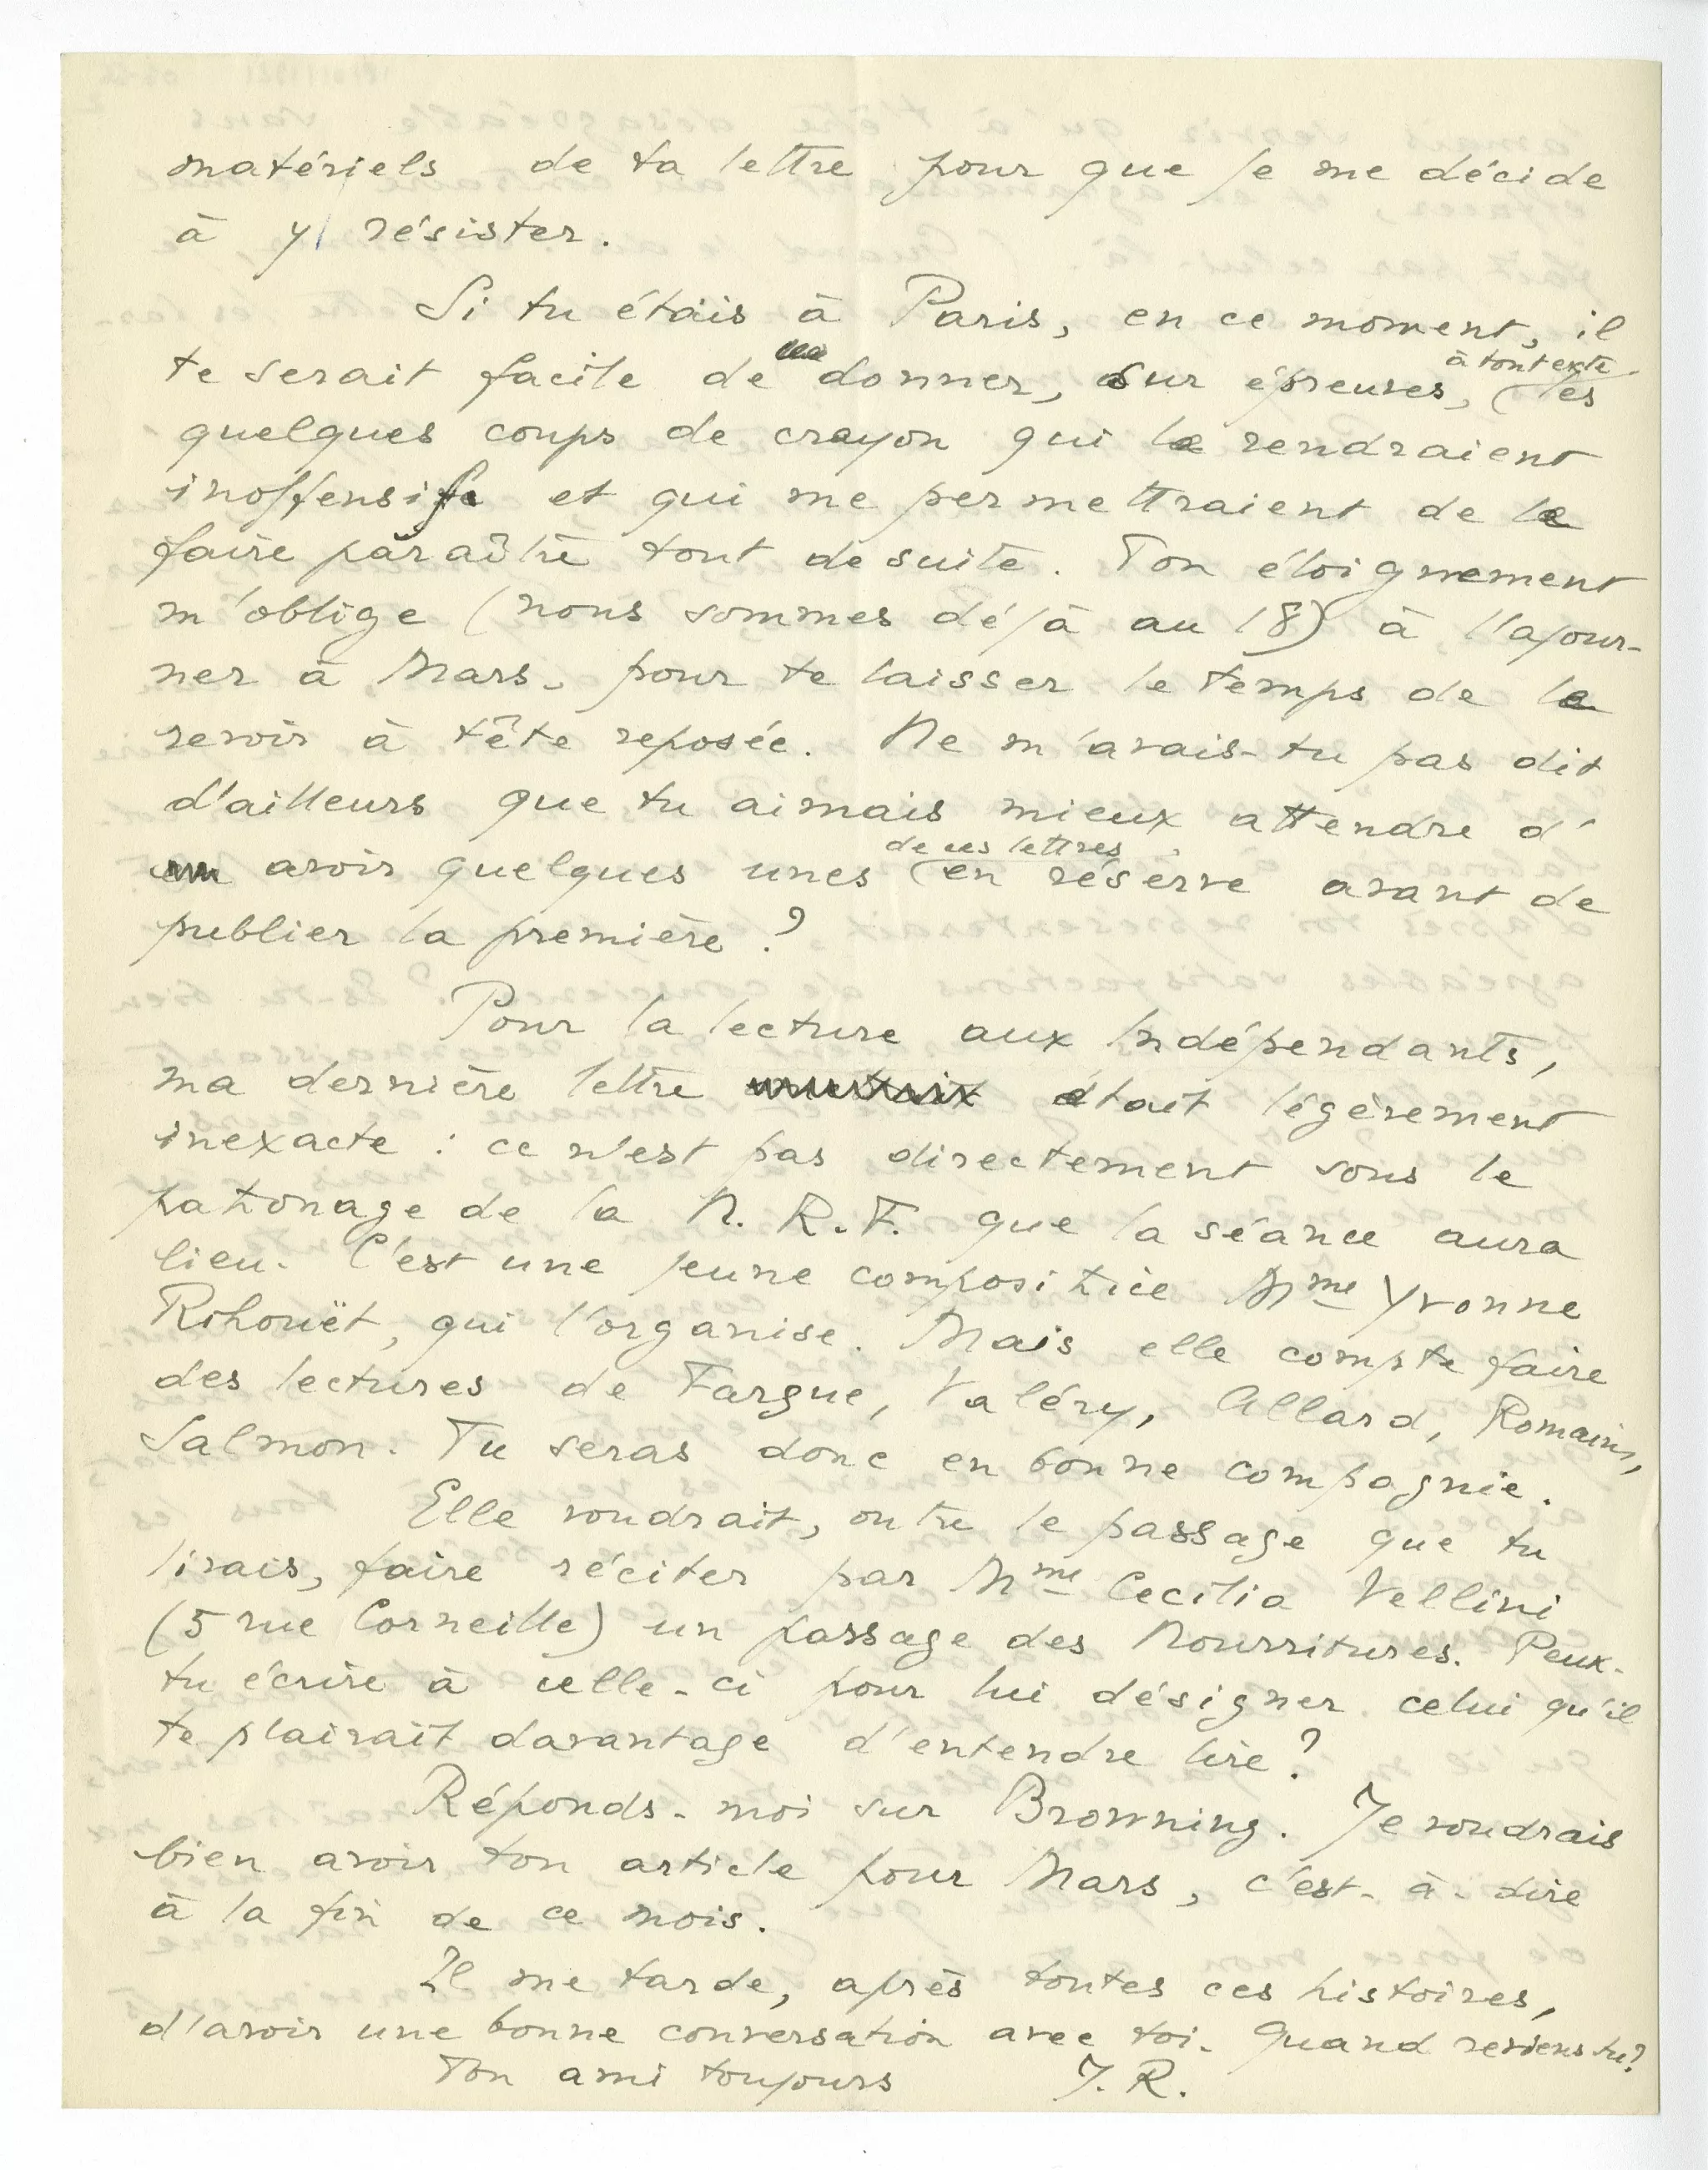 matériels de ta lettre pour que je me décide
à y résister.
Si tu étais à Paris, en ce moment, il
te serait facile de donner, sur épreuves, à ton texte les
quelques coups de crayon qui le rendraient
inoffensif et qui me permettraient de le
faire paraître tout de suite. Ton éloignement
m'oblige (nous sommes déjà au 18) à l'ajour-
ner à Mars, pour te laisser le temps de le
revoir à tête reposée. Ne m'avais-tu pas dit
d'ailleurs que tu aimais mieux attendre d'
avoir quelques unes de ces lettres en réserve avant de
publier la première ?
Pour la lecture aux Indépendants,
ma dernière lettre était légèrement
inexacte : ce n'est pas directement sous le
patronage de la N. R. F. que la séance aura
lieu. C'est une jeune compositrice Mme Yvonne
Rihouët, qui l'organise. Mais elle compte faire
des lectures de Fargue, Valéry, Allard, Romains,
Salmon. Tu seras donc en bonne compagnie.
Elle voudrait, outre le passage que tu
lirais, faire réciter par Mme Cecilia Vellini
(5 rue Corneille) un passage des Nourritures. Peux-
tu écrire à celle-ci pour lui désigner celui qu'il
te plairait davantage d'entendre lire ?
Réponds-moi sur Browning. Je voudrais
bien avoir ton article pour Mars, c'est-à-dire
à la fin de ce mois.
Il me tarde, après toutes ces histoires,
d'avoir une bonne conversation avec toi. Quand reviens tu ?
Ton ami toujours J. R.